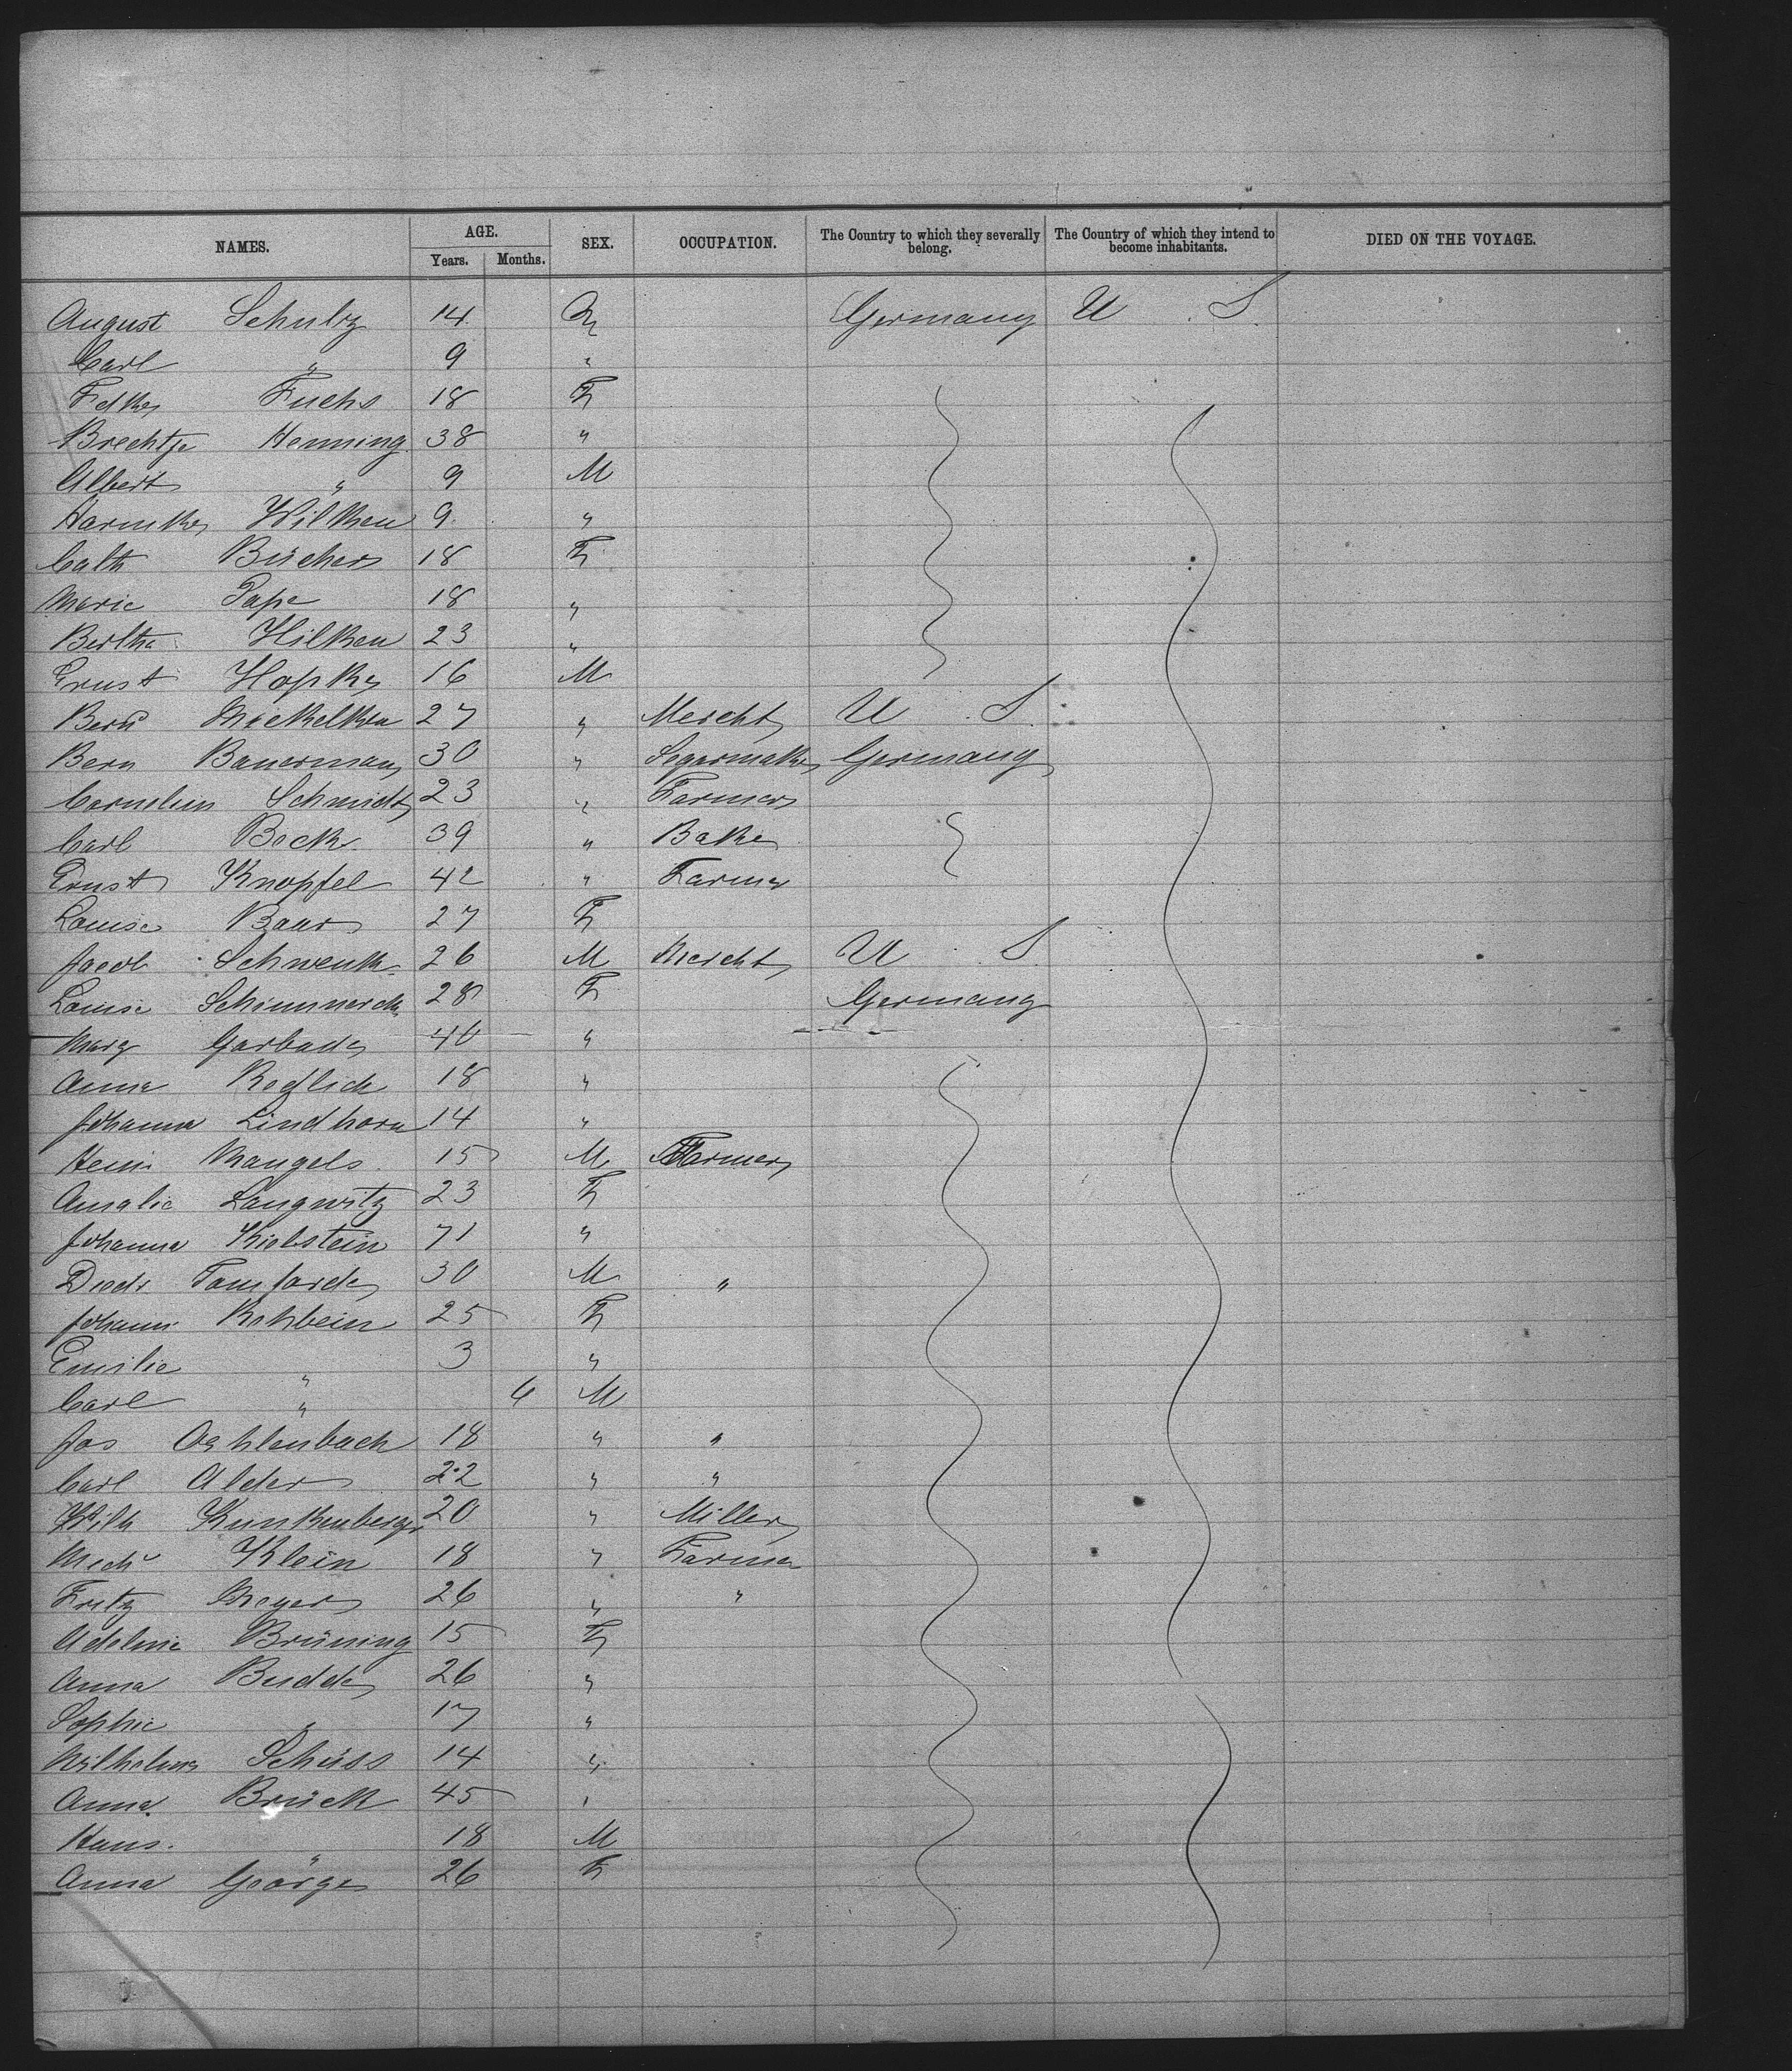 NAMES. AGE. SEX. OCCUPATION. The Country to which they severally belong. The Country of which they intend to become inhabitants. DIED ON THE VOYAGE.
Years. Months.
August Schulz 14 M Germany U S
Carl " 9 "
Fuchs 18 F
Brechtje Henning 38 "
Albert " 9 M
Wilken 9 "
Cath Büchers 18 F
Marie Pape 18 "
Bertha Hilken 23 "
Ernst Hopke 16 M
27 " Mercht U S
Bern Bauerman 30 " Segarmaker Germany
Cornelius Schmidt 23 " Farmer
Carl Beck 39 " Baker
Ernst Knopfel 42 " Farmer
Louise Baur 27 F
Jacob Schwenk 26 M Mercht U S
Louise 28 F Germany
Marg Garbade 40 "
Anna Redlich 18 "
Johanna Lindhorn 14 "
Heinr Mangels 15 M Farmer
Amalie Langwitz 23 F
Johanna Kiebstein 71 "
Diedr Tamfarde 30 M "
Johann Rehbein 25 F
Emilie " 3 "
Carl " 6 M
Jos Oehlenbach 18 " "
Carl Alder 22 " "
Wilh Kunkenberger 20 " Miller
Klein 18 " Farmer
Fritz Meyer 26 " "
Adeline Brüning 15 F
Anna Budde 26 "
Sophie " 17 "
Wilhelmine Schüss 14 "
Anna Brück 45 "
Hans " 18 M
Anna George 26 F